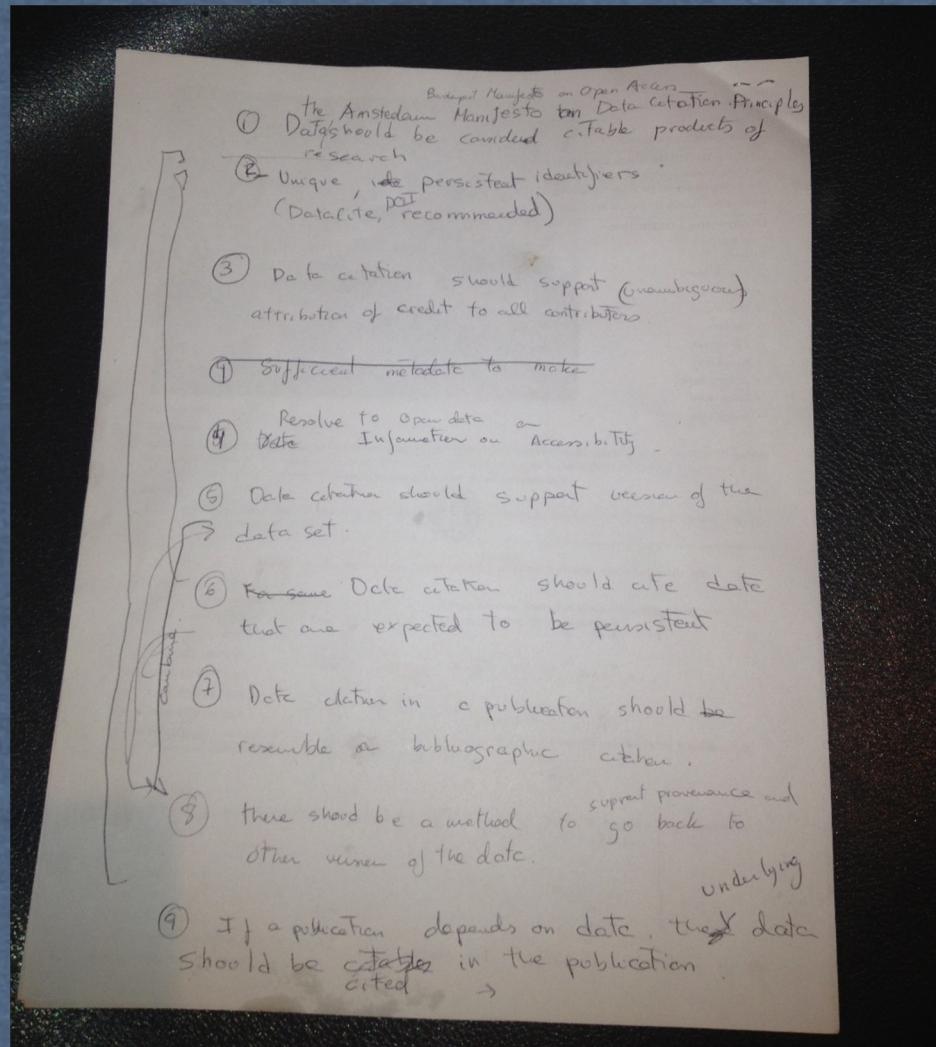 Budapest Manifesto on Open Access
the Amsterdam Manifesto on Data Citation Principles
① Data should be considered citable products of
research
② Unique, persistent identifiers
(DataCite, DOI recommended)
③ Data citation should support (unambiguous)
attribution of credit to all contributors
④ Sufficient metadata to make
Resolve to Open data or
④ Data Information on Accessibility.
⑤ Data citation should support version of the
data set.
⑥ For some Data citation should cite data
that are expected to be persistent
⑦ Data citation in a publication should be
resemble a bibliographic citation.
combine
support provenance and
⑧ there shoud be a method to go back to
other version of the data.
underlying
⑨ If a publication depends on data, the data
should be citable in the publication
cited →